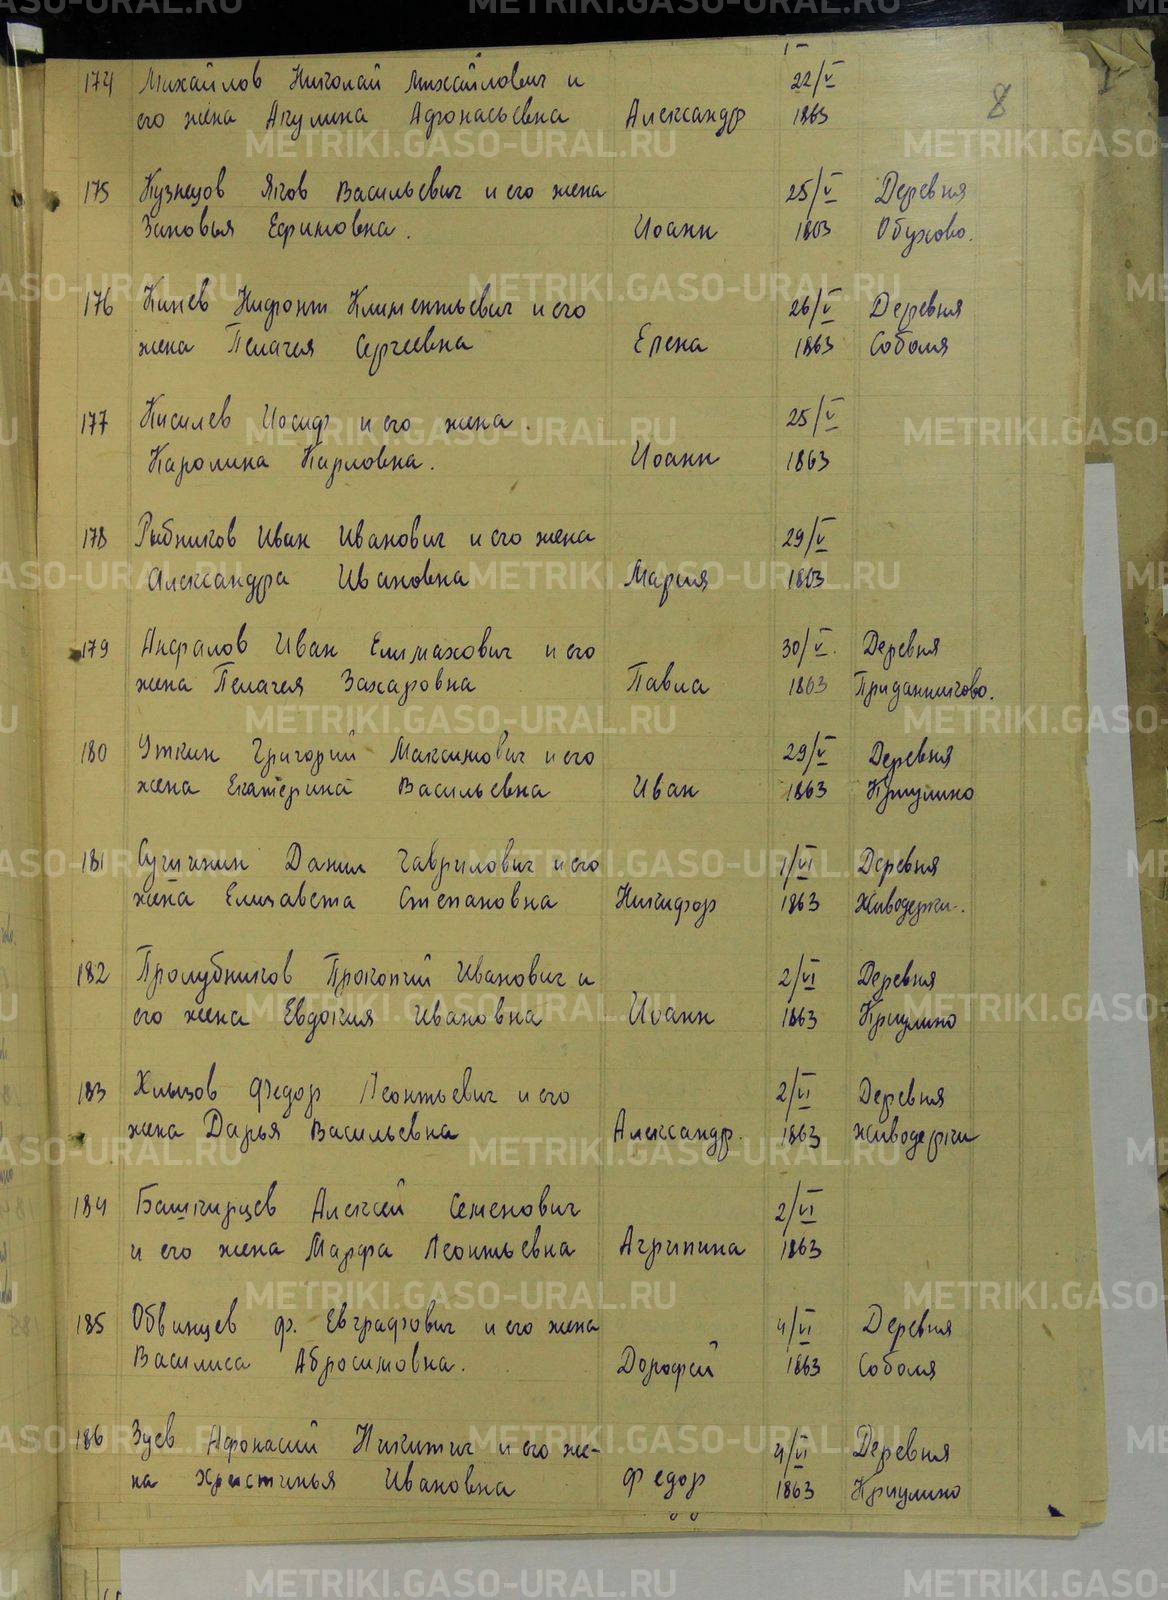 METRIKI.GASO-URAL.RU
8
174 Михайлов Николай Михайлович и 22/V
его жена Акулина Афонасьевна Александр 1863
175 Кузнецов Яков Васильевич и его жена 25/V Деревня
Зиновья Ефимовна. Иоанн 1863 Обухово.
176 Кинев Нифонт Климентьевич и его 26/V Деревня
жена Пелагея Сергеевна Елена 1863 Соболя
177 Киселев Иосиф и его жена. 25/V
Каролина Карловна. Иоанн 1863
178 Рыбников Иван Иванович и его жена 29/V
Александра Ивановна Мария 1863
179 Анфалов Иван Елимахович и его 30/V. Деревня
жена Пелагея Захаровна Павла 1863 Приданниково.
180 Уткин Григорий Максимович и его 29/V Деревня
жена Екатерина Васильевна Иван 1863 Криулино
181 Данил Гаврилович и его 1/VI Деревня
жена Елизавета Степановна Никифор 1863 Живодерки.
182 Пролубников Прокопий Иванович и 2/VI Деревня
его жена Евдокия Ивановна Иоанн 1863 Криулино
183 Хлызов Федор Леонтьевич и его 2/VI Деревня
жена Дарья Васильевна Александр. 1863 Живодерки
184 Башкирцев Алексей Семенович 2/VI
и его жена Марфа Леонтьевна Агрипина 1863
185 Обвинцев ф. Евграфович и его жена 4/VI Деревня
Василиса Абросимовна. Дорофей 1863 Соболя
186 Зуев Афонасий Никитич и его же- 4/VI Деревня
на Христинья Ивановна Федор 1863 Криулино